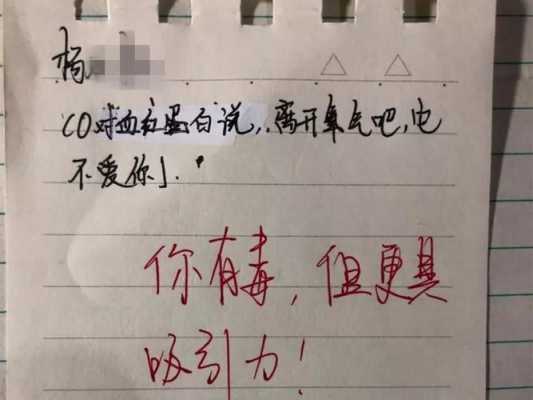 杨
CO对血红蛋白说，离开氧气吧，它
不爱你」.
你有毒，但更具
吸引力！